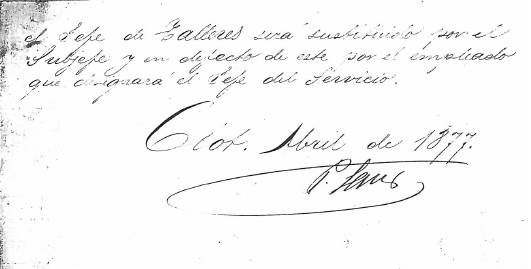 el Jefe de Talleres será sustituido por el
Subjefe y en defecto de este por el empleado
que designará el Jefe del Servicio.
Abril de 1877.